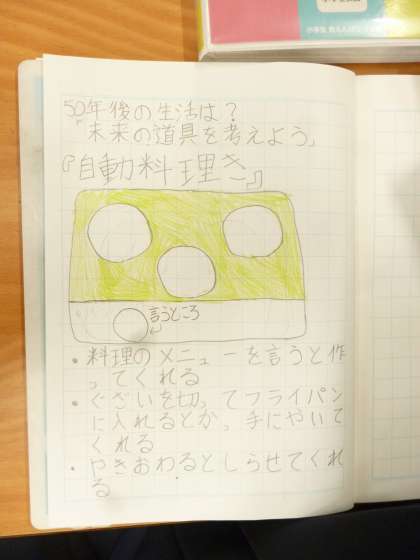 50年後の生活は？
「未来の道具を考えよう」
『自動料理き』
言うところ
・料理のメニューを言うと作
ってくれる
・ぐざいを切ってフライパン
に入れるとか。手にやいて
くれる
・やきおわるとしらせてくれ
る